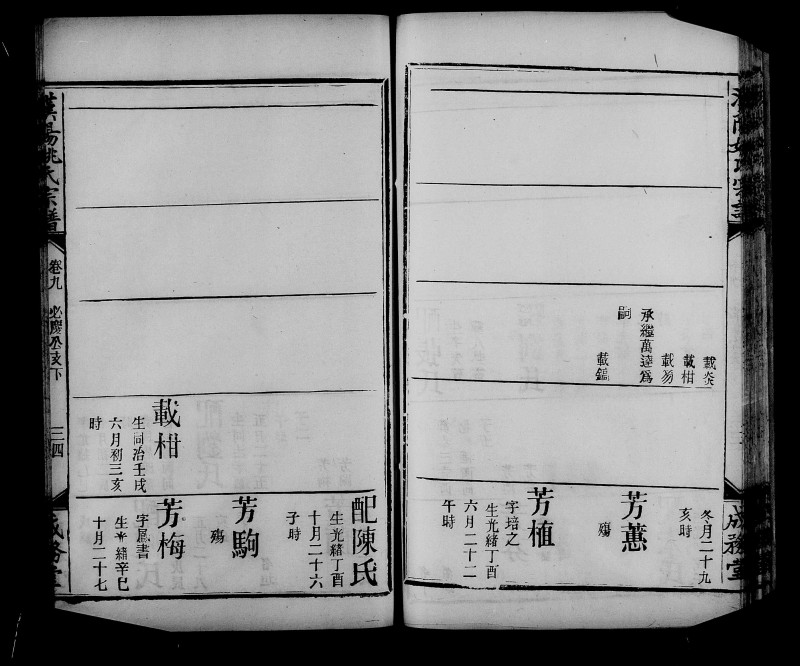 載炎
載柑
載芴
承繼萬逵爲
嗣
載鎬
冬月二十九
亥時
芳蕙
殤
芳植
字培之
生光緒丁酉
六月二十二
午時
成務堂
配陳氏
生光緒丁酉
十月二十六
子時
芳駒
殤
載柑
生同治壬戌
六月初三亥
時
芳梅
字屬書
生光緒辛巳
十月二十七
漢陽姚氏宗譜
卷九
必慶公支下
三四
成務堂